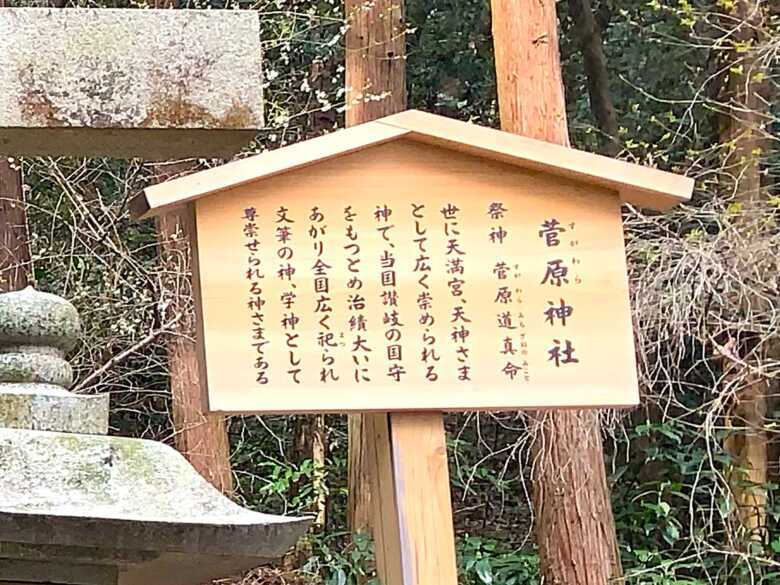 菅原神社
すがわら
祭神 菅原道真命
すがわらみちざねのみこと
世に天満宮、天神さま
として広く崇められる
神で、当国讃岐の国守
をもつとめ治績大いに
あがり全国広く祀られ
まつ
文筆の神、学神として
尊崇せられる神さまである